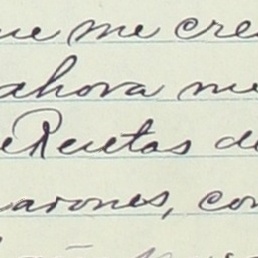 que me cre
ahora me
Recetas de
arones, con